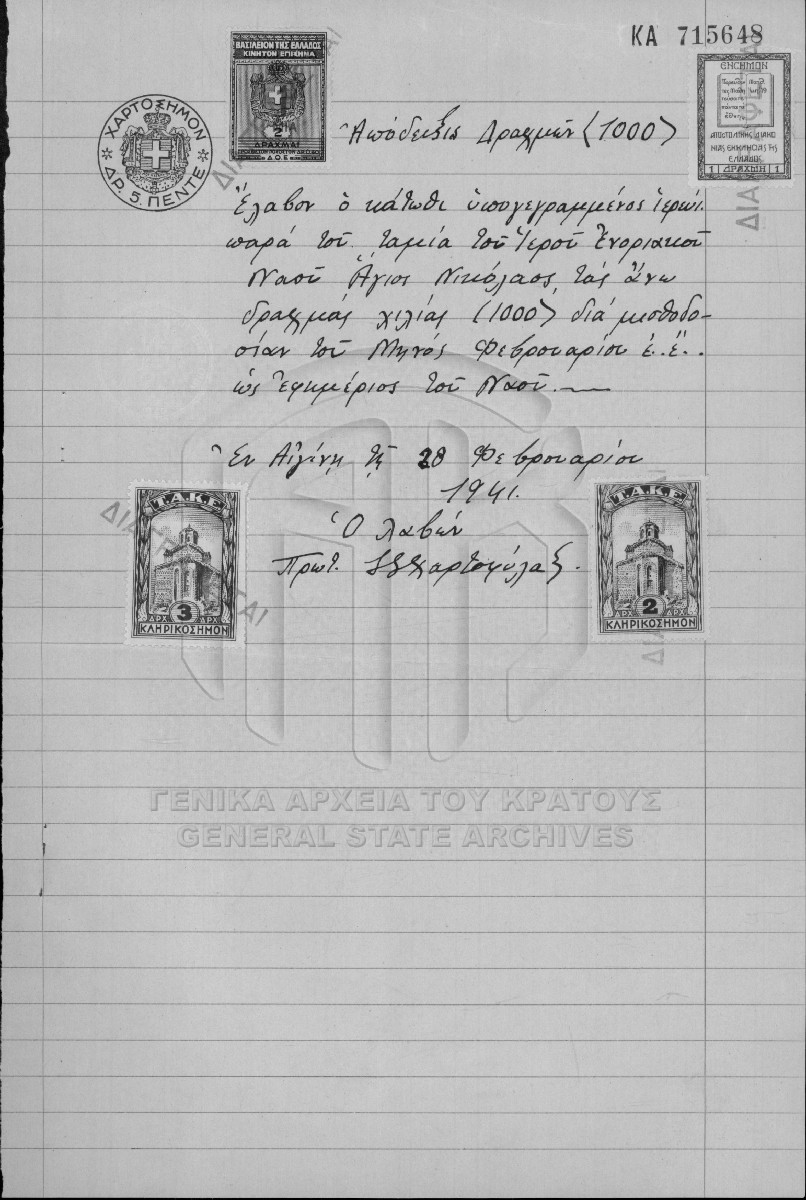 ΚΑ 715648
ΧΑΡΤΟΣΗΜΟΝ
ΔΡ. 5. ΠΕΝΤΕ
ΒΑΣΙΛΕΙΟΝ ΤΗΣ ΕΛΛΑΔΟΣ
ΚΙΝΗΤΟΝ ΕΠΙΣΗΜΑ
2
ΔΡΑΧΜΑΙ
Δ.Ο.Ε.
ΕΝΣΗΜΟΝ
ΑΠΟΣΤΟΛΙΚΗΣ ΔΙΑΚΟ
ΝΙΑΣ ΕΚΚΛΗΣΙΑΣ ΤΗΣ
ΕΛΛΑΔΟΣ
1 ΔΡΑΧΜΗ 1
Ἀπόδειξις Δραχμῶν (1000)
Ἔλαβον ὁ κάτωθι ὑπογεγραμμένος
παρά τοῦ ταμία τοῦ Ἱεροῦ Ἐνοριακοῦ
Ναοῦ Ἅγιος Νικόλαος τάς ἄνω
δραχμάς χιλίας (1000) διά μισθοδο-
σίαν τοῦ Μηνός Φεβρουαρίου ἐ. ἔ.
ὡς Ἐφημέριος τοῦ Ναοῦ.
Ἐν Αἰγίνῃ τῇ 28 Φεβρουαρίου
1941.
Ὁ λαβών
Πρωτ. Χαρτοφύλαξ.
Τ.Α.Κ.Ε.
ΔΡΧ 3 ΔΡΧ
ΚΛΗΡΙΚΟΣΗΜΟΝ
Τ.Α.Κ.Ε.
ΔΡΧ 2 ΔΡΧ
ΚΛΗΡΙΚΟΣΗΜΟΝ
ΓΕΝΙΚΑ ΑΡΧΕΙΑ ΤΟΥ ΚΡΑΤΟΥΣ
GENERAL STATE ARCHIVES